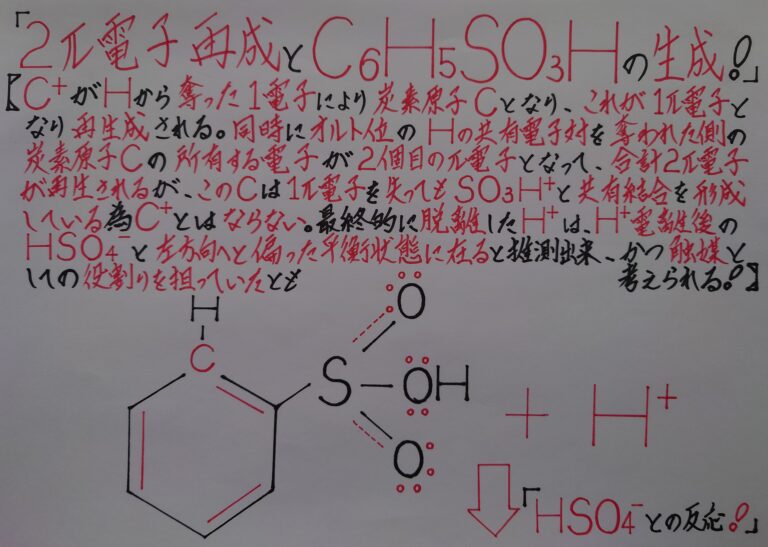 「2π電子再成とC6H5SO3Hの生成!」
【C+がHから奪った1電子により炭素原子Cとなり、これが1π電子と
なり再生成される。同時にオルト位のHの共有電子対を奪われた側の
炭素原子Cの所有する電子が2個目のπ電子となって、合計2π電子
が再生されるが、このCは1π電子を失ってもSO3H+と共有結合を形成
している為C+とはならない。最終的に脱離したH+は、H+電離後の
HSO4-と左方向へと偏った平衡状態に在ると推測出来、かつ触媒と
しての役割りを担っていたとも考えられる!】
H
O
C
S
OH
+ H+
O
「HSO4-との反応!」